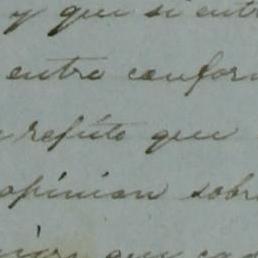 y que si entr
entre confor
refuto que
opinion sobr
que ca